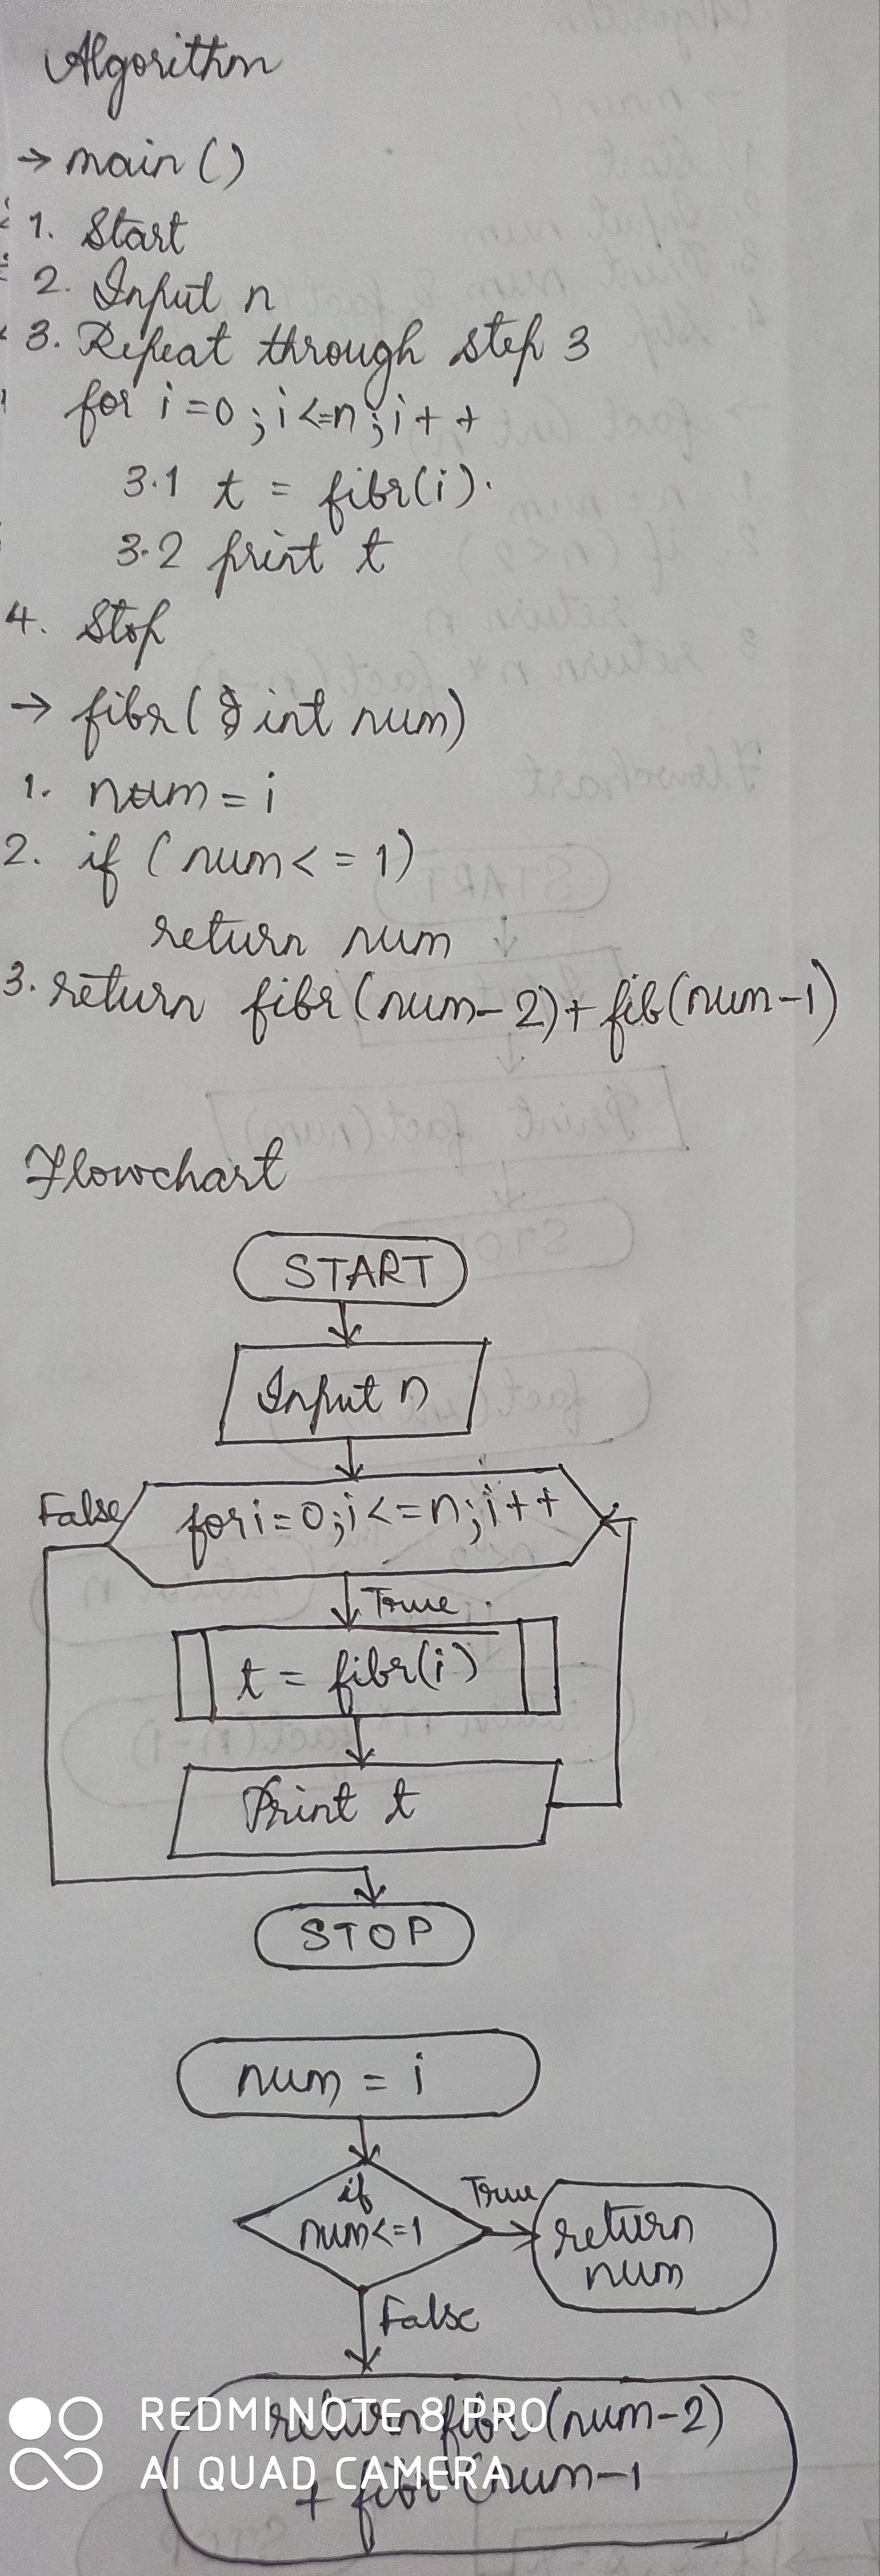 Algorithm
→ main ()
1. Start
2. Input n
3. Repeat through step 3
for i=0 ; i<=n ; i++
3.1 t = fibr(i).
3.2 print t
4. Stop
→ fibr( int num)
1. num = i
2. if ( num < = 1)
return num
3. return fibr(num-2)+fib(num-1)
Flowchart
START
Input n
False
for i=0;i<=n;i++
True
t = fibr(i)
Print t
STOP
num = i
if
num<=1
True
return
num
False
return fibr(num-2)
+ fibr(num-1
REDMI NOTE 8 PRO
AI QUAD CAMERA